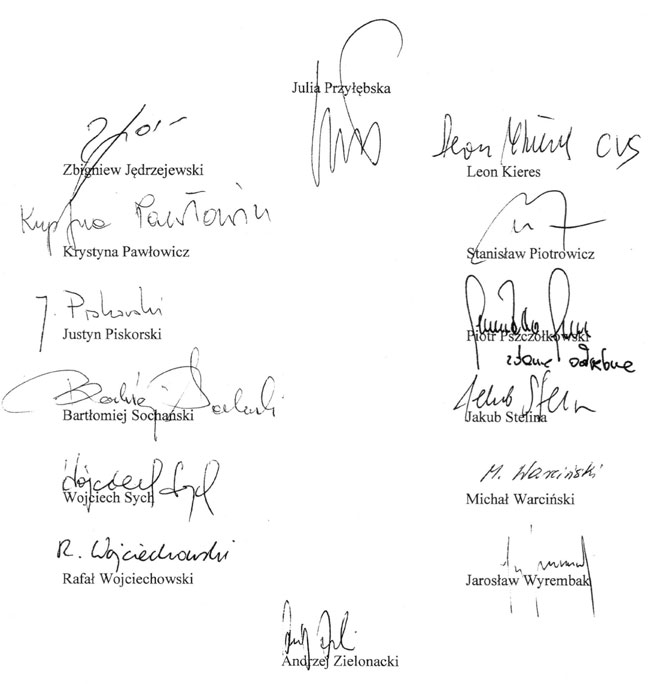 Julia Przyłębska
Leon Kieres CVS
Zbigniew Jędrzejewski
Leon Kieres
Krystyna Pawłowicz
Krystyna Pawłowicz
Stanisław Piotrowicz
J. Piskorski
Justyn Piskorski
Piotr Pszczółkowski
zdanie odrębne
Bartłomiej Sochański
Jakub Stelina
Jakub Stelina
Wojciech Sych
Wojciech Sych
M. Warciński
Michał Warciński
R. Wojciechowski
Rafał Wojciechowski
Jarosław Wyrembak
Andrzej Zielonacki